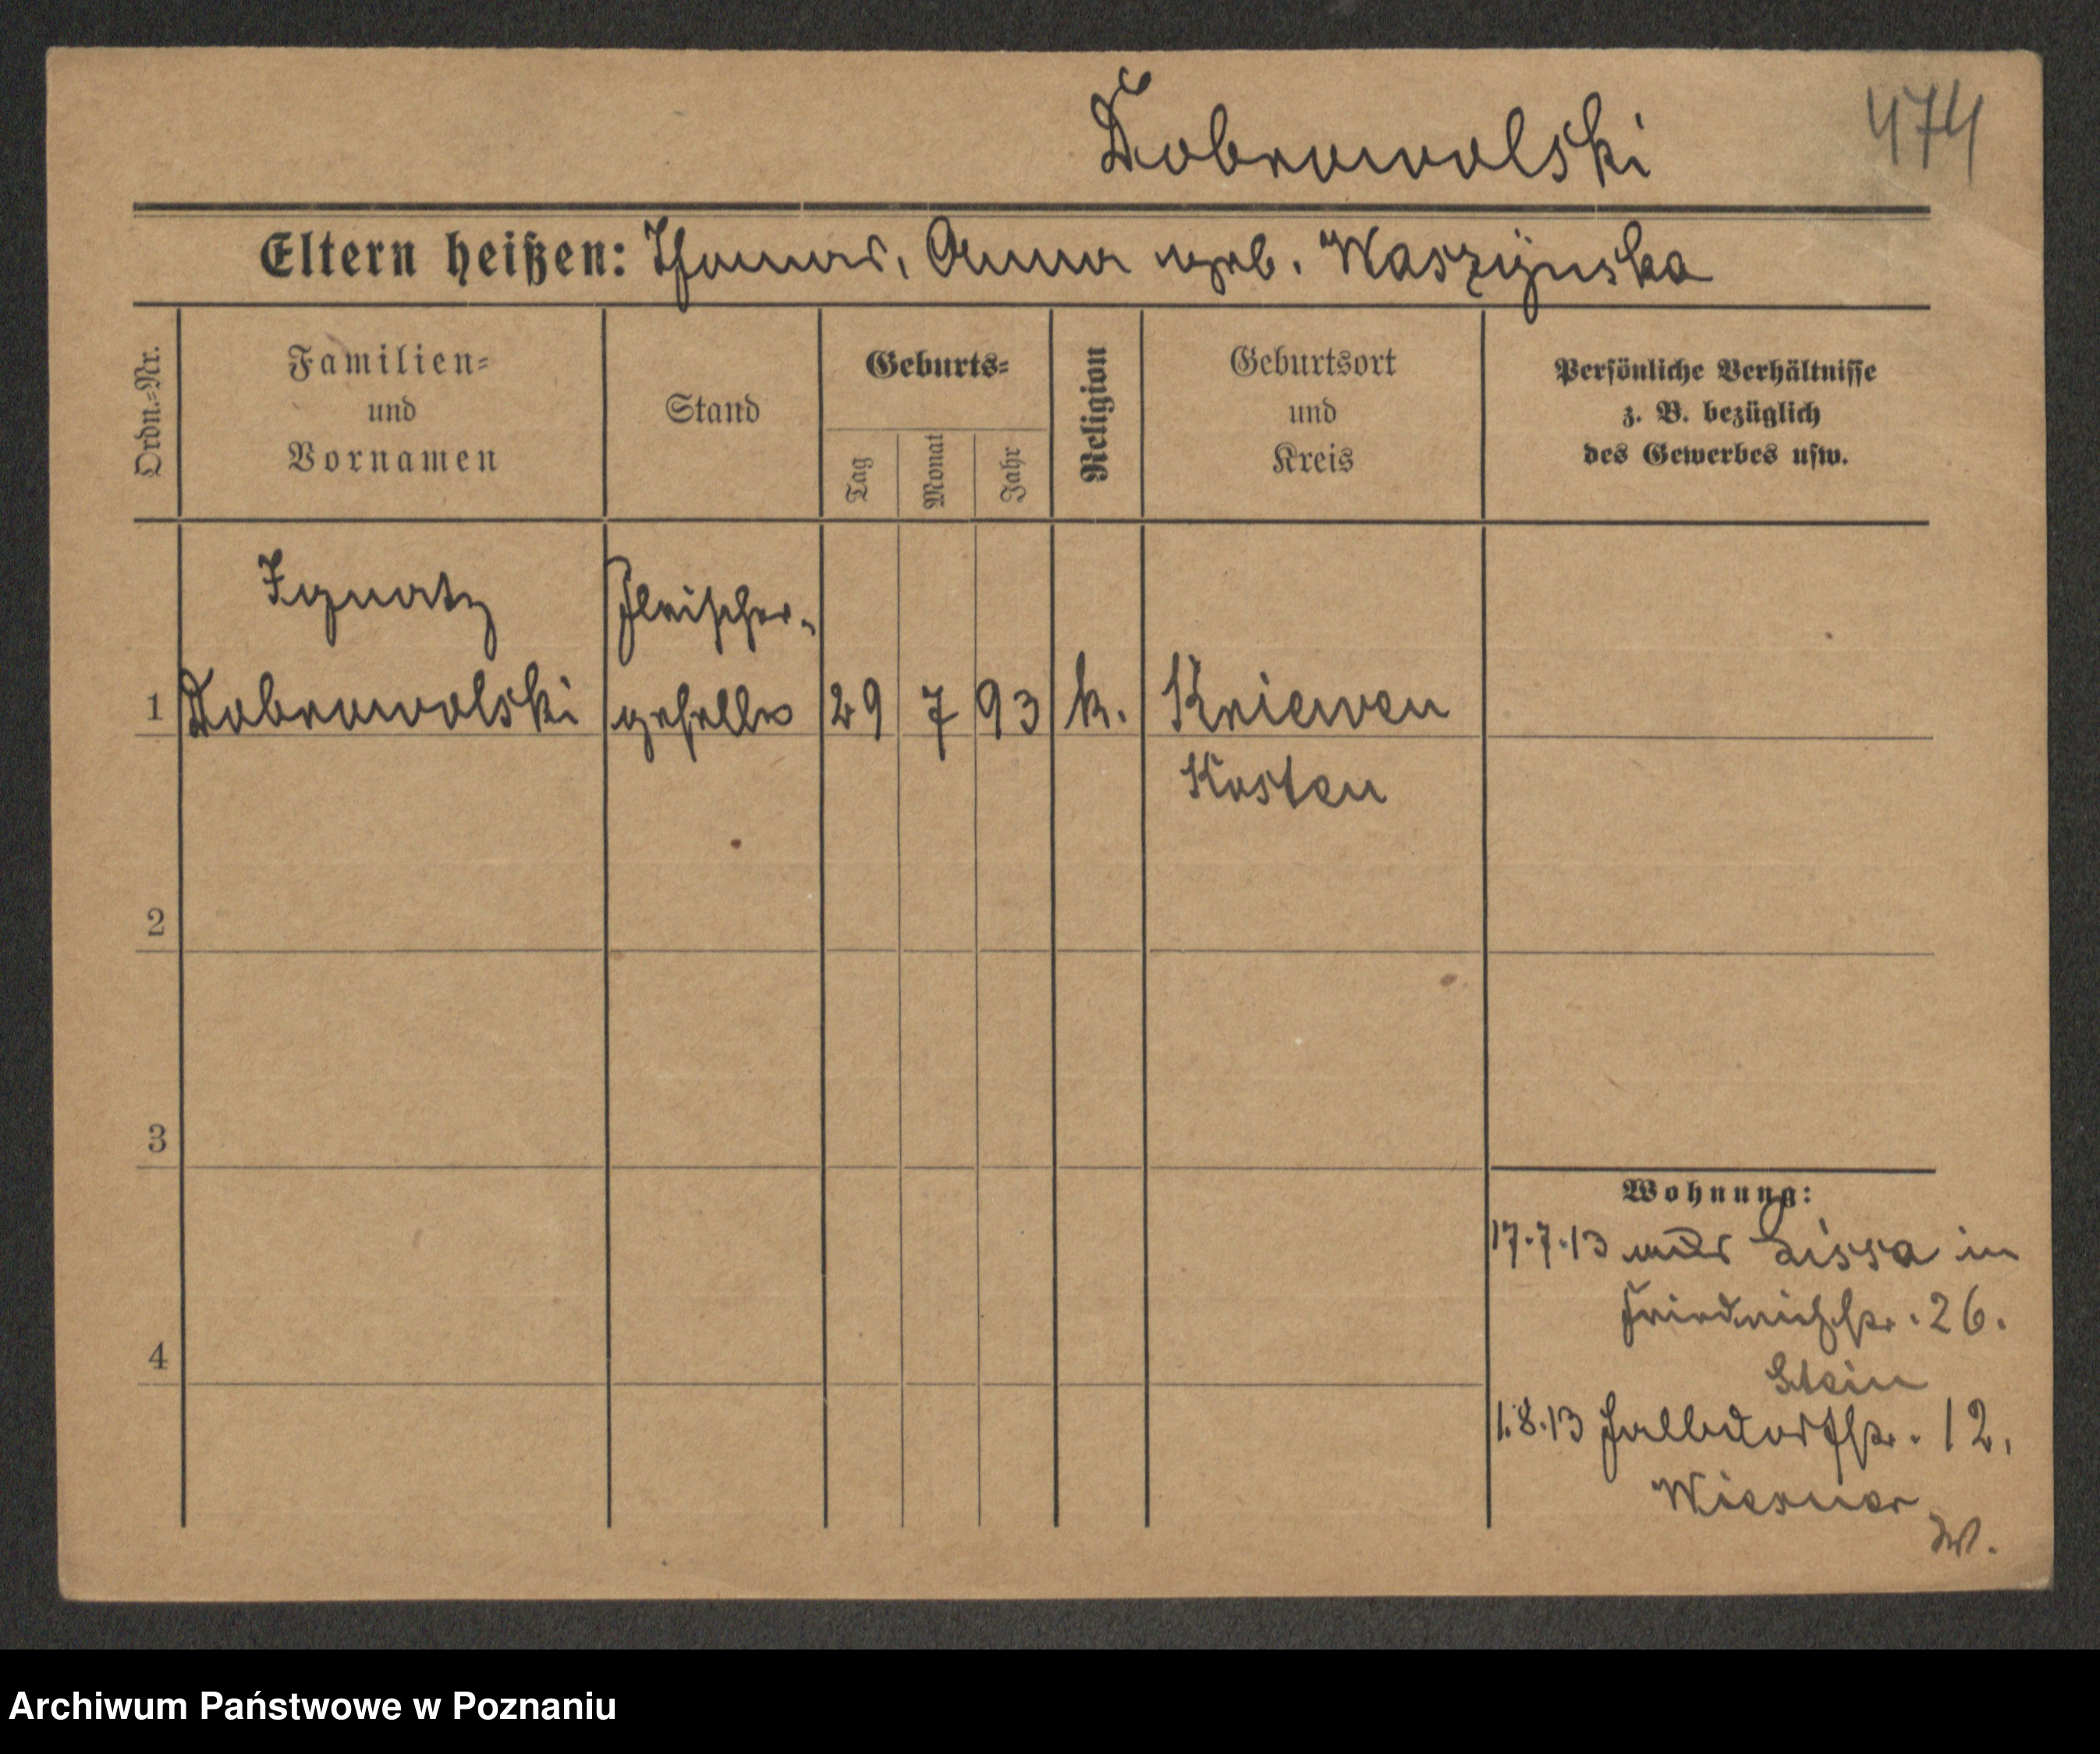 Dobrowolski
474
Eltern heißen: Thomas, Anna geb. Waszÿnska
Ordn.-Nr.
Familien-
und
Vornamen
Stand
Geburts-
Tag
Monat
Jahr
Religion
Geburtsort
und
Kreis
Persönliche Verhältnisse
z. B. bezüglich
des Gewerbes usw.
Ignatz
Dobrowolski
Fleischer-
geselle
1
29 7 93 k. Kriewen
Kosten
2
3
4
Wohnung:
17.7.13 aus Lissa in
Friedrichstr. 26.
Stein
1.8.13 Halbdorfstr. 12,
Wiesner
W.
Archiwum Państwowe w Poznaniu